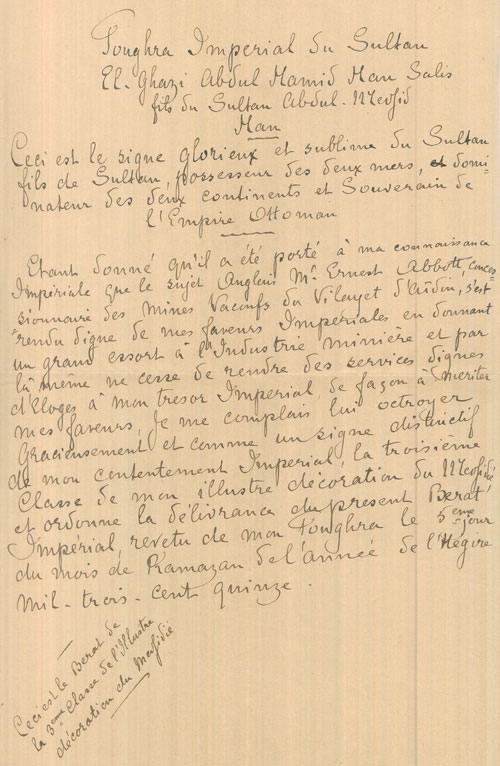 Toughra Imperial du Sultan
El-Ghazi Abdul Hamid Han Salis
fils du Sultan Abdul-Medjid
Han
Ceci est le signe glorieux et sublime du Sultan
fils de Sultan, possesseur des deux mers, et domi-
nateur des deux continents et Souverain de
l'Empire Ottoman
Etant donné qu'il a été porté à ma connaissance
Impériale que le sujet Anglais Mr Ernest Abbott, conces-
sionnaire des mines Vacoufs du Vilayet d'Aïdin, s'est
rendu digne de mes faveurs Imperiales en donnant
un grand essort à l'Industrie minière et par
là même ne cesse de rendre des services dignes
d'éloges à mon tresor Imperial, de façon à meriter
mes faveurs, Je me complais lui octroyer
Gracieusement et comme un signe distinctif
de mon contentement Imperial, la troisième
Classe de mon illustre décoration du Medjidié
et ordonne la délivrance du present Berat
Impérial, revetu de mon Toughra le 5eme jour
du mois de Ramazan de l'année de l'Hégire
mil-trois-cent quinze.
Ceci est le Berat de
la 3eme Classe de l'Illustre
décoration du Medjidié